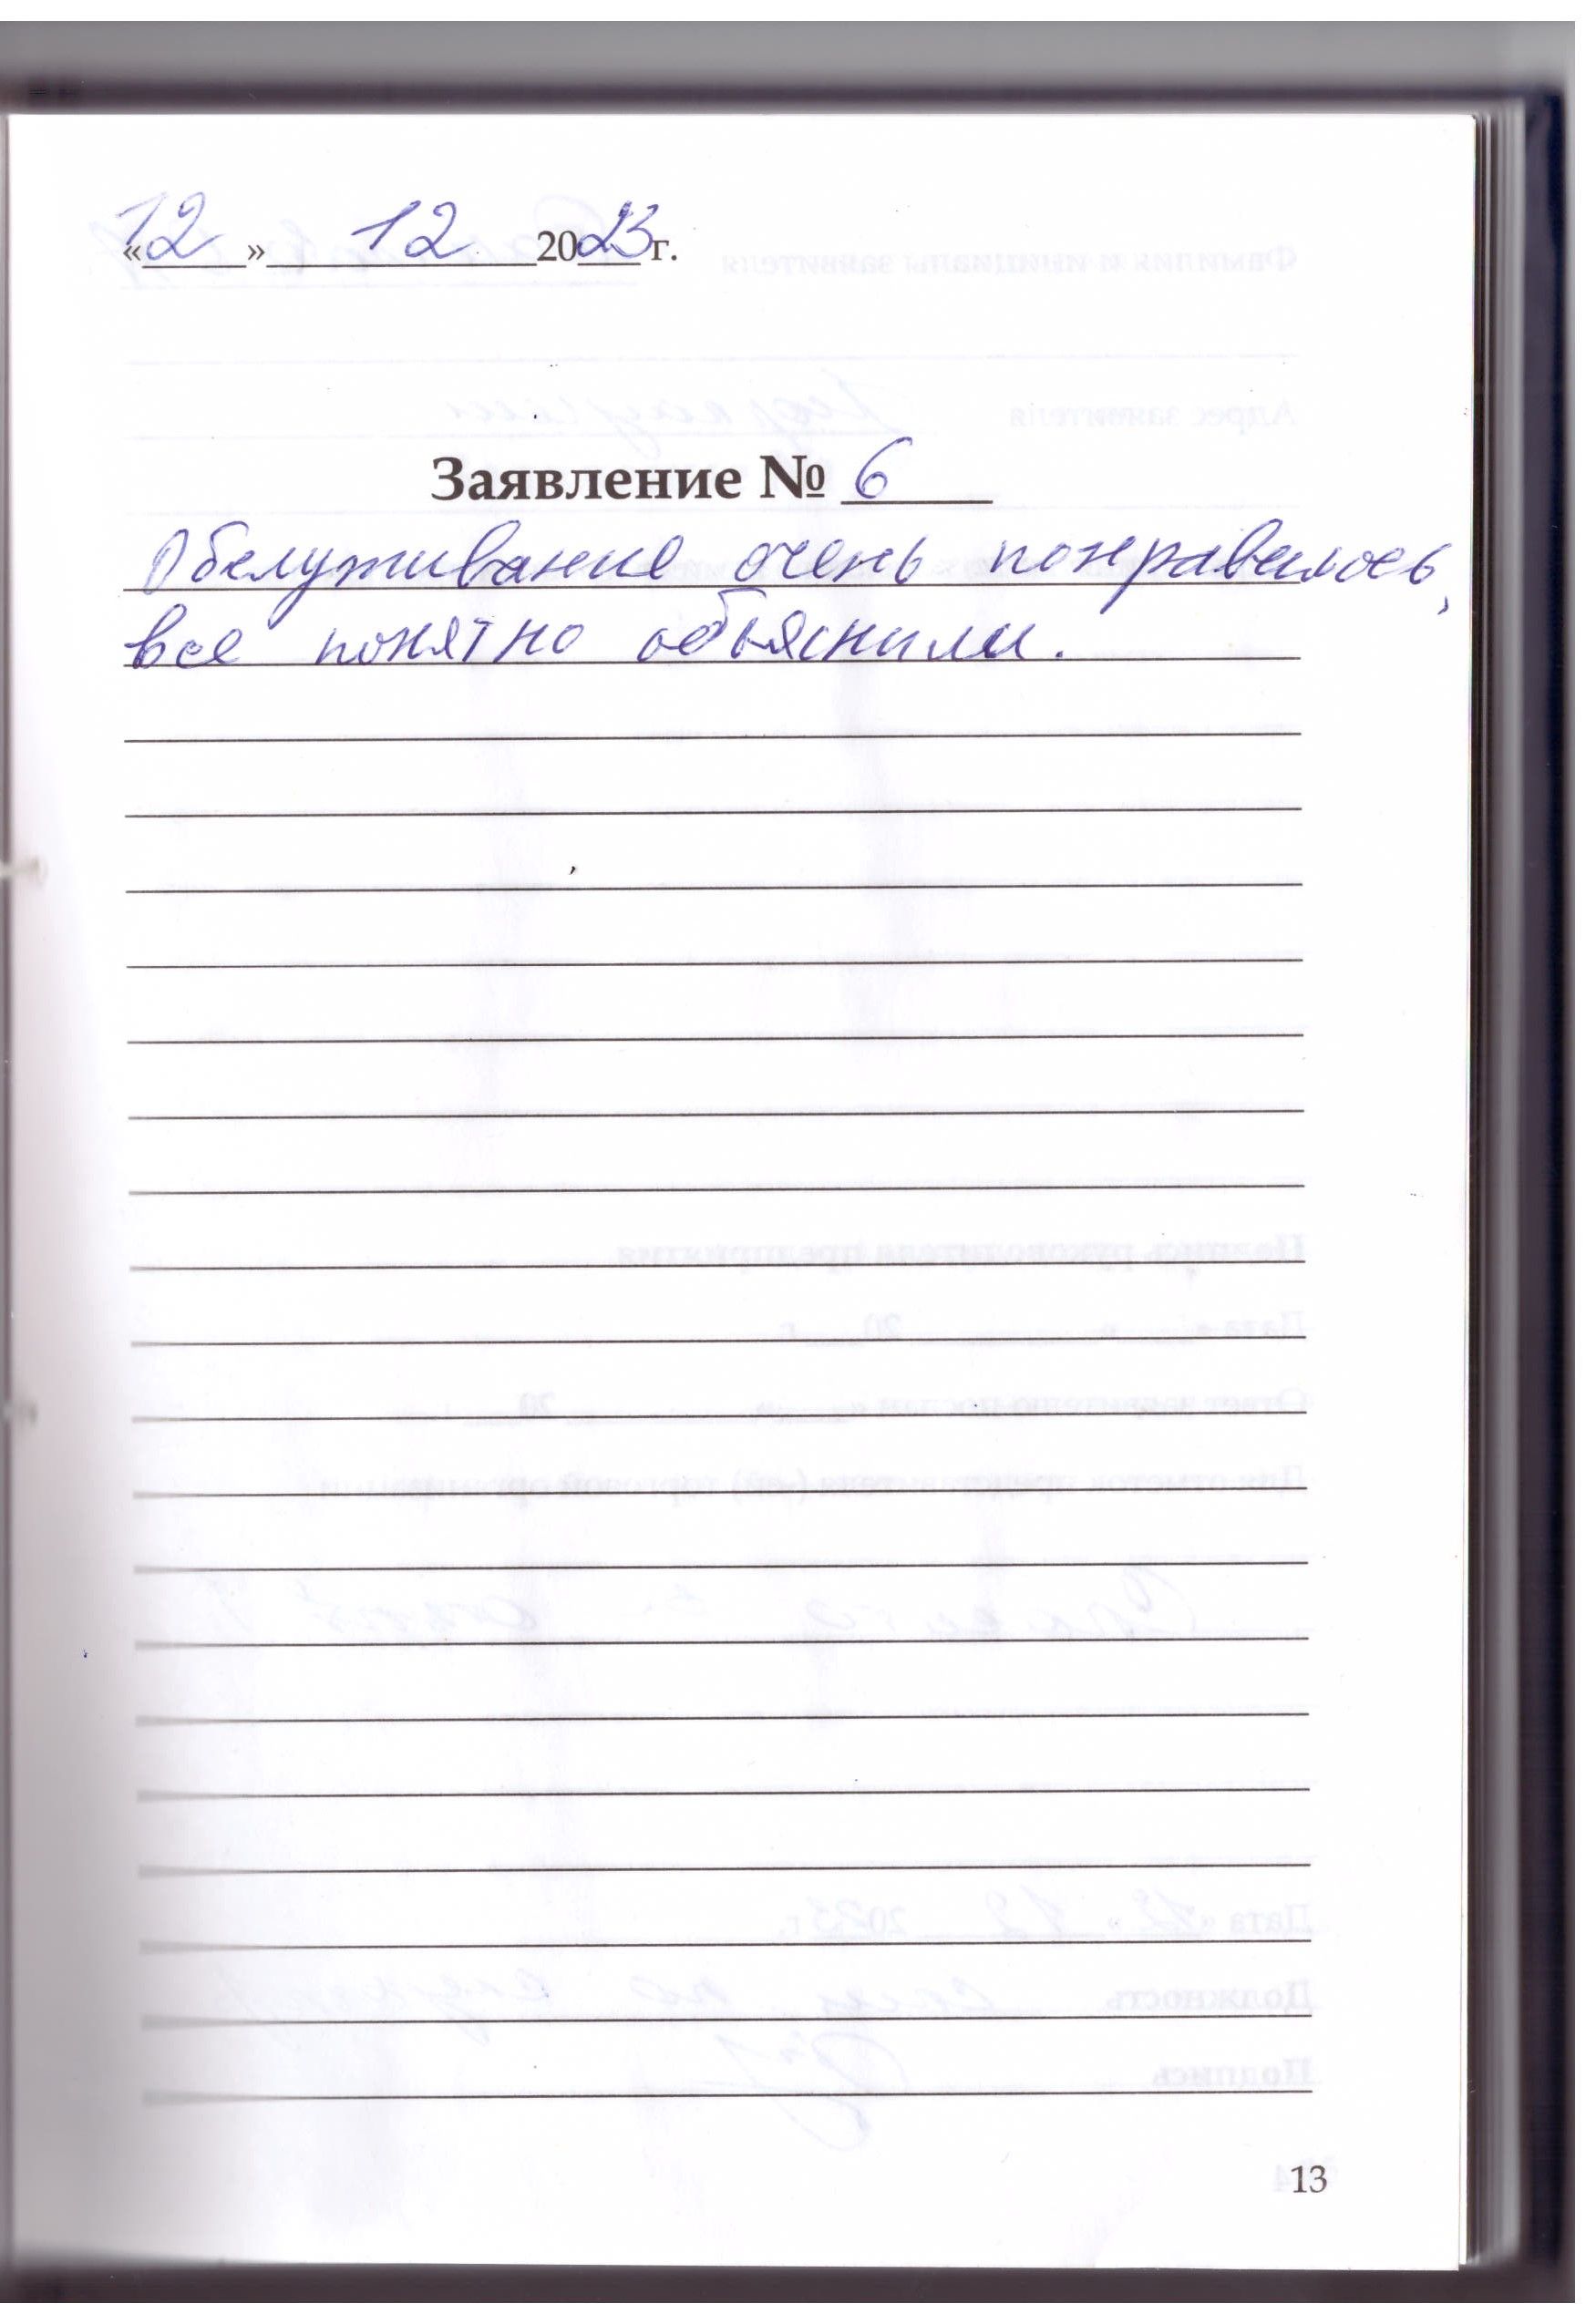 «12» 12 2023 г.
Заявление № 6
Обслуживание очень понравилось,
все понятно объяснили.
13